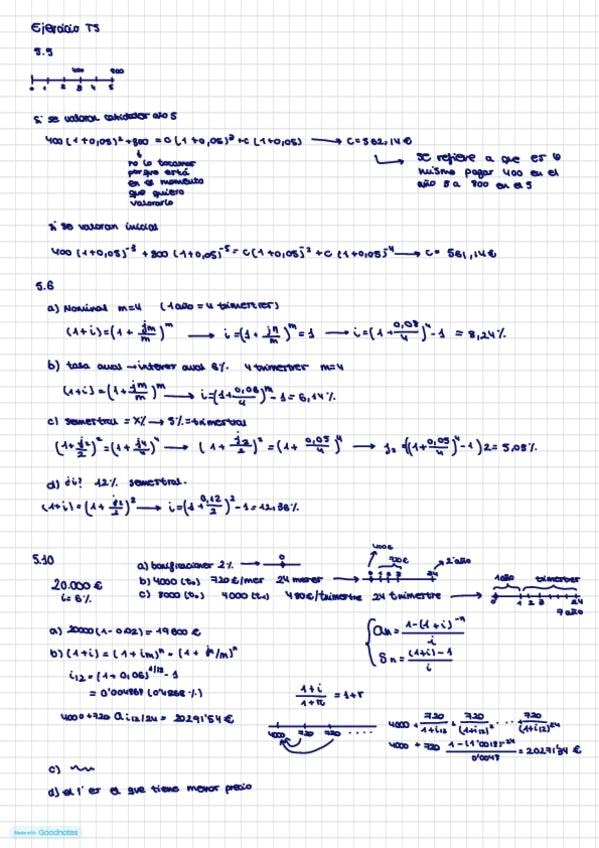 Ejercicio T5
5.5
400 800
0 1 2 3 4 5
si se valoran cantidades año 5
400 (1+0,05)² + 800 = C (1+0,05)³ + C (1+0,05) → C = 562,14 €
↓
no lo tocamos
porque está
en el momento
que quiero
valorarlo
se refiere a que es lo
mismo pagar 400 en el
año 3 a 800 en el 5
si se valoran inicial
400 (1+0,05)⁻³ + 800 (1+0,05)⁻⁵ = C (1+0,05)⁻² + C (1+0,05)⁻⁴ → C = 561,14 €
5.6
a) Nominal m=4 (1 año = 4 trimestres)
(1+i) = (1 + jm/m)^m → i = (1 + jm/m)^m = 1 → i = (1 + 0,08/4)⁴ - 1 = 8,24%
b) tasa anual → interes anual 6% 4 trimestres m=4
(1+i) = (1 + jm/m)^m → i = (1 + 0,06/4)^m - 1 = 6,14%
c) semestral = X% → 5% = trimestral
(1 + j2/2)² = (1 + j4/4)⁴ → (1 + j2/2)² = (1 + 0,05/4)⁴ → j2 = ((1 + 0,05/4)⁴ - 1) 2 = 5,03%
d) ¿i? 12% semestral.
(1+i) = (1 + j2/2)² → i = (1 + 0,12/2)² - 1 = 12,36%
5.10
20.000 €
i = 6%
a) bonificaciones 2% → 0
b) 4000 (to) 720 €/mes 24 meses →
4000 €
720 €
24 2 año
c) 8000 (to) 4000 (t1) 480 €/trimestre 24 trimestre →
1 año trimestres
0 1 2 3 24
7 año
a) 20000 (1 - 0,02) = 19600 €
an = 1-(1+i)^-n / i
Sn = (1+i)-1 / i
b) (1+i) = (1 + im)^m = (1 + jm/m)^m
i12 = (1 + 0,06)^1/12 - 1
= 0'004867 (0'4868%)
1+i / 1+π = 1+r
4000 + 720 a i12/24 = 20291'54 €
4000 720 720 ....
4000 + 720/1+i12 + 720/(1+i12)² ... + 720/(1+i12)²⁴
c)
d) el 1º es el que tiene menor precio
Made with Goodnotes